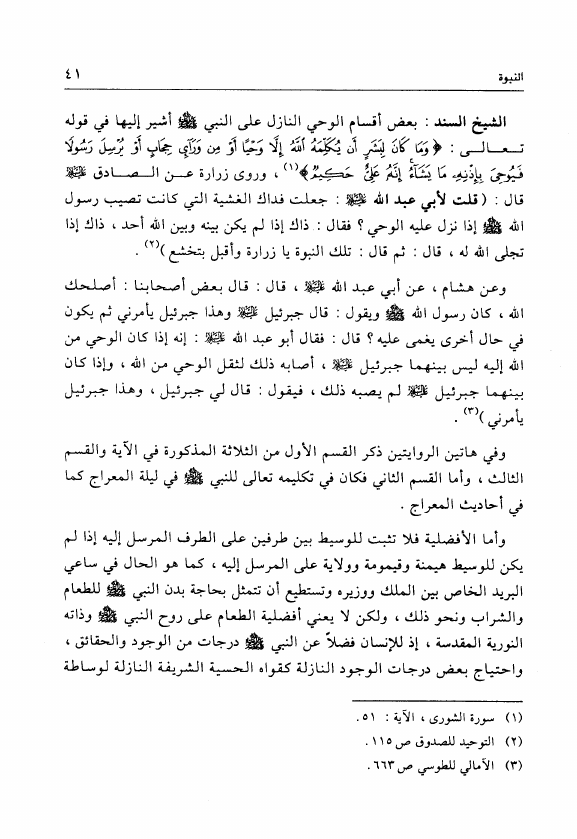 النبوة
٤١
الشيخ السند : بعض أقسام الوحي النازل على النبي ﷺ أشير إليها في قوله
تعالى : ﴿ وَمَا كَانَ لِبَشَرٍ أَن يُكَلِّمَهُ اللَّهُ إِلَّا وَحْيًا أَوْ مِن وَرَآئِ حِجَابٍ أَوْ يُرْسِلَ رَسُولًا
فَيُوحِيَ بِإِذْنِهِ مَا يَشَآءُ إِنَّهُ عَلِيٌّ حَكِيمٌ ﴾(١) ، وروى زرارة عن الصادق ﵇
قال : ( قلت لأبي عبد الله ﵇ : جعلت فداك الغشية التي كانت تصيب رسول
الله ﷺ إذا نزل عليه الوحي ؟ فقال : ذاك إذا لم يكن بينه وبين الله أحد ، ذاك إذا
تجلى الله له ، قال : ثم قال : تلك النبوة يا زرارة وأقبل بتخشع )(٢) .
وعن هشام ، عن أبي عبد الله ﵇ ، قال : قال بعض أصحابنا : أصلحك
الله ، كان رسول الله ﷺ ويقول : قال جبرئيل ﵇ وهذا جبرئيل يأمرني ثم يكون
في حال أخرى يغمى عليه ؟ قال : فقال أبو عبد الله ﵇ : إنه إذا كان الوحي من
الله إليه ليس بينهما جبرئيل ﵇ ، أصابه ذلك لثقل الوحي من الله ، وإذا كان
بينهما جبرئيل ﵇ لم يصبه ذلك ، فيقول : قال لي جبرئيل ، وهذا جبرئيل
يأمرني )(٣) .
وفي هاتين الروايتين ذكر القسم الأول من الثلاثة المذكورة في الآية والقسم
الثالث ، وأما القسم الثاني فكان في تكليمه تعالى للنبي ﷺ في ليلة المعراج كما
في أحاديث المعراج .
وأما الأفضلية فلا تثبت للوسيط بين طرفين على الطرف المرسل إليه إذا لم
يكن للوسيط هيمنة وقيمومة وولاية على المرسل إليه ، كما هو الحال في ساعي
البريد الخاص بين الملك ووزيره وتستطيع أن تتمثل بحاجة بدن النبي ﷺ للطعام
والشراب ونحو ذلك ، ولكن لا يعني أفضلية الطعام على روح النبي ﷺ وذاته
النورية المقدسة ، إذ للإنسان فضلاً عن النبي ﷺ درجات من الوجود والحقائق ،
واحتياج بعض درجات الوجود النازلة كقواه الحسية الشريفة النازلة لوساطة
(١) سورة الشورى ، الآية : ٥١ .
(٢) التوحيد للصدوق ص١١٥ .
(٣) الأمالي للطوسي ص٦٦٣ .